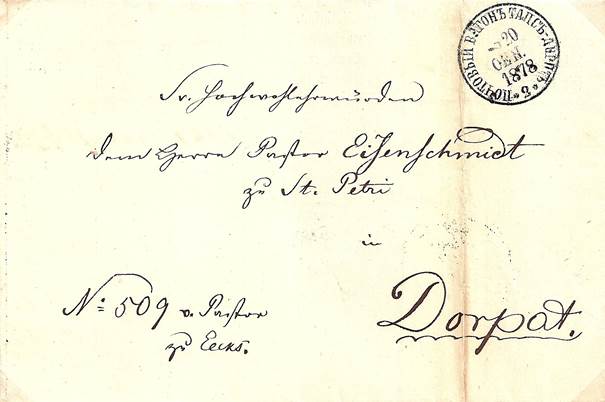 ПОЧТОВЫЙ ВАГОНЪ ТАПСЪ-ДЕРПТЪ
20
СЕН.
1878
Sr. Hochwohlehrwürden
dem Herrn Pastor Eisenschmidt
zu St. Petri
in
No: 509 v. Pastor
zu Eecks.
Dorpat.